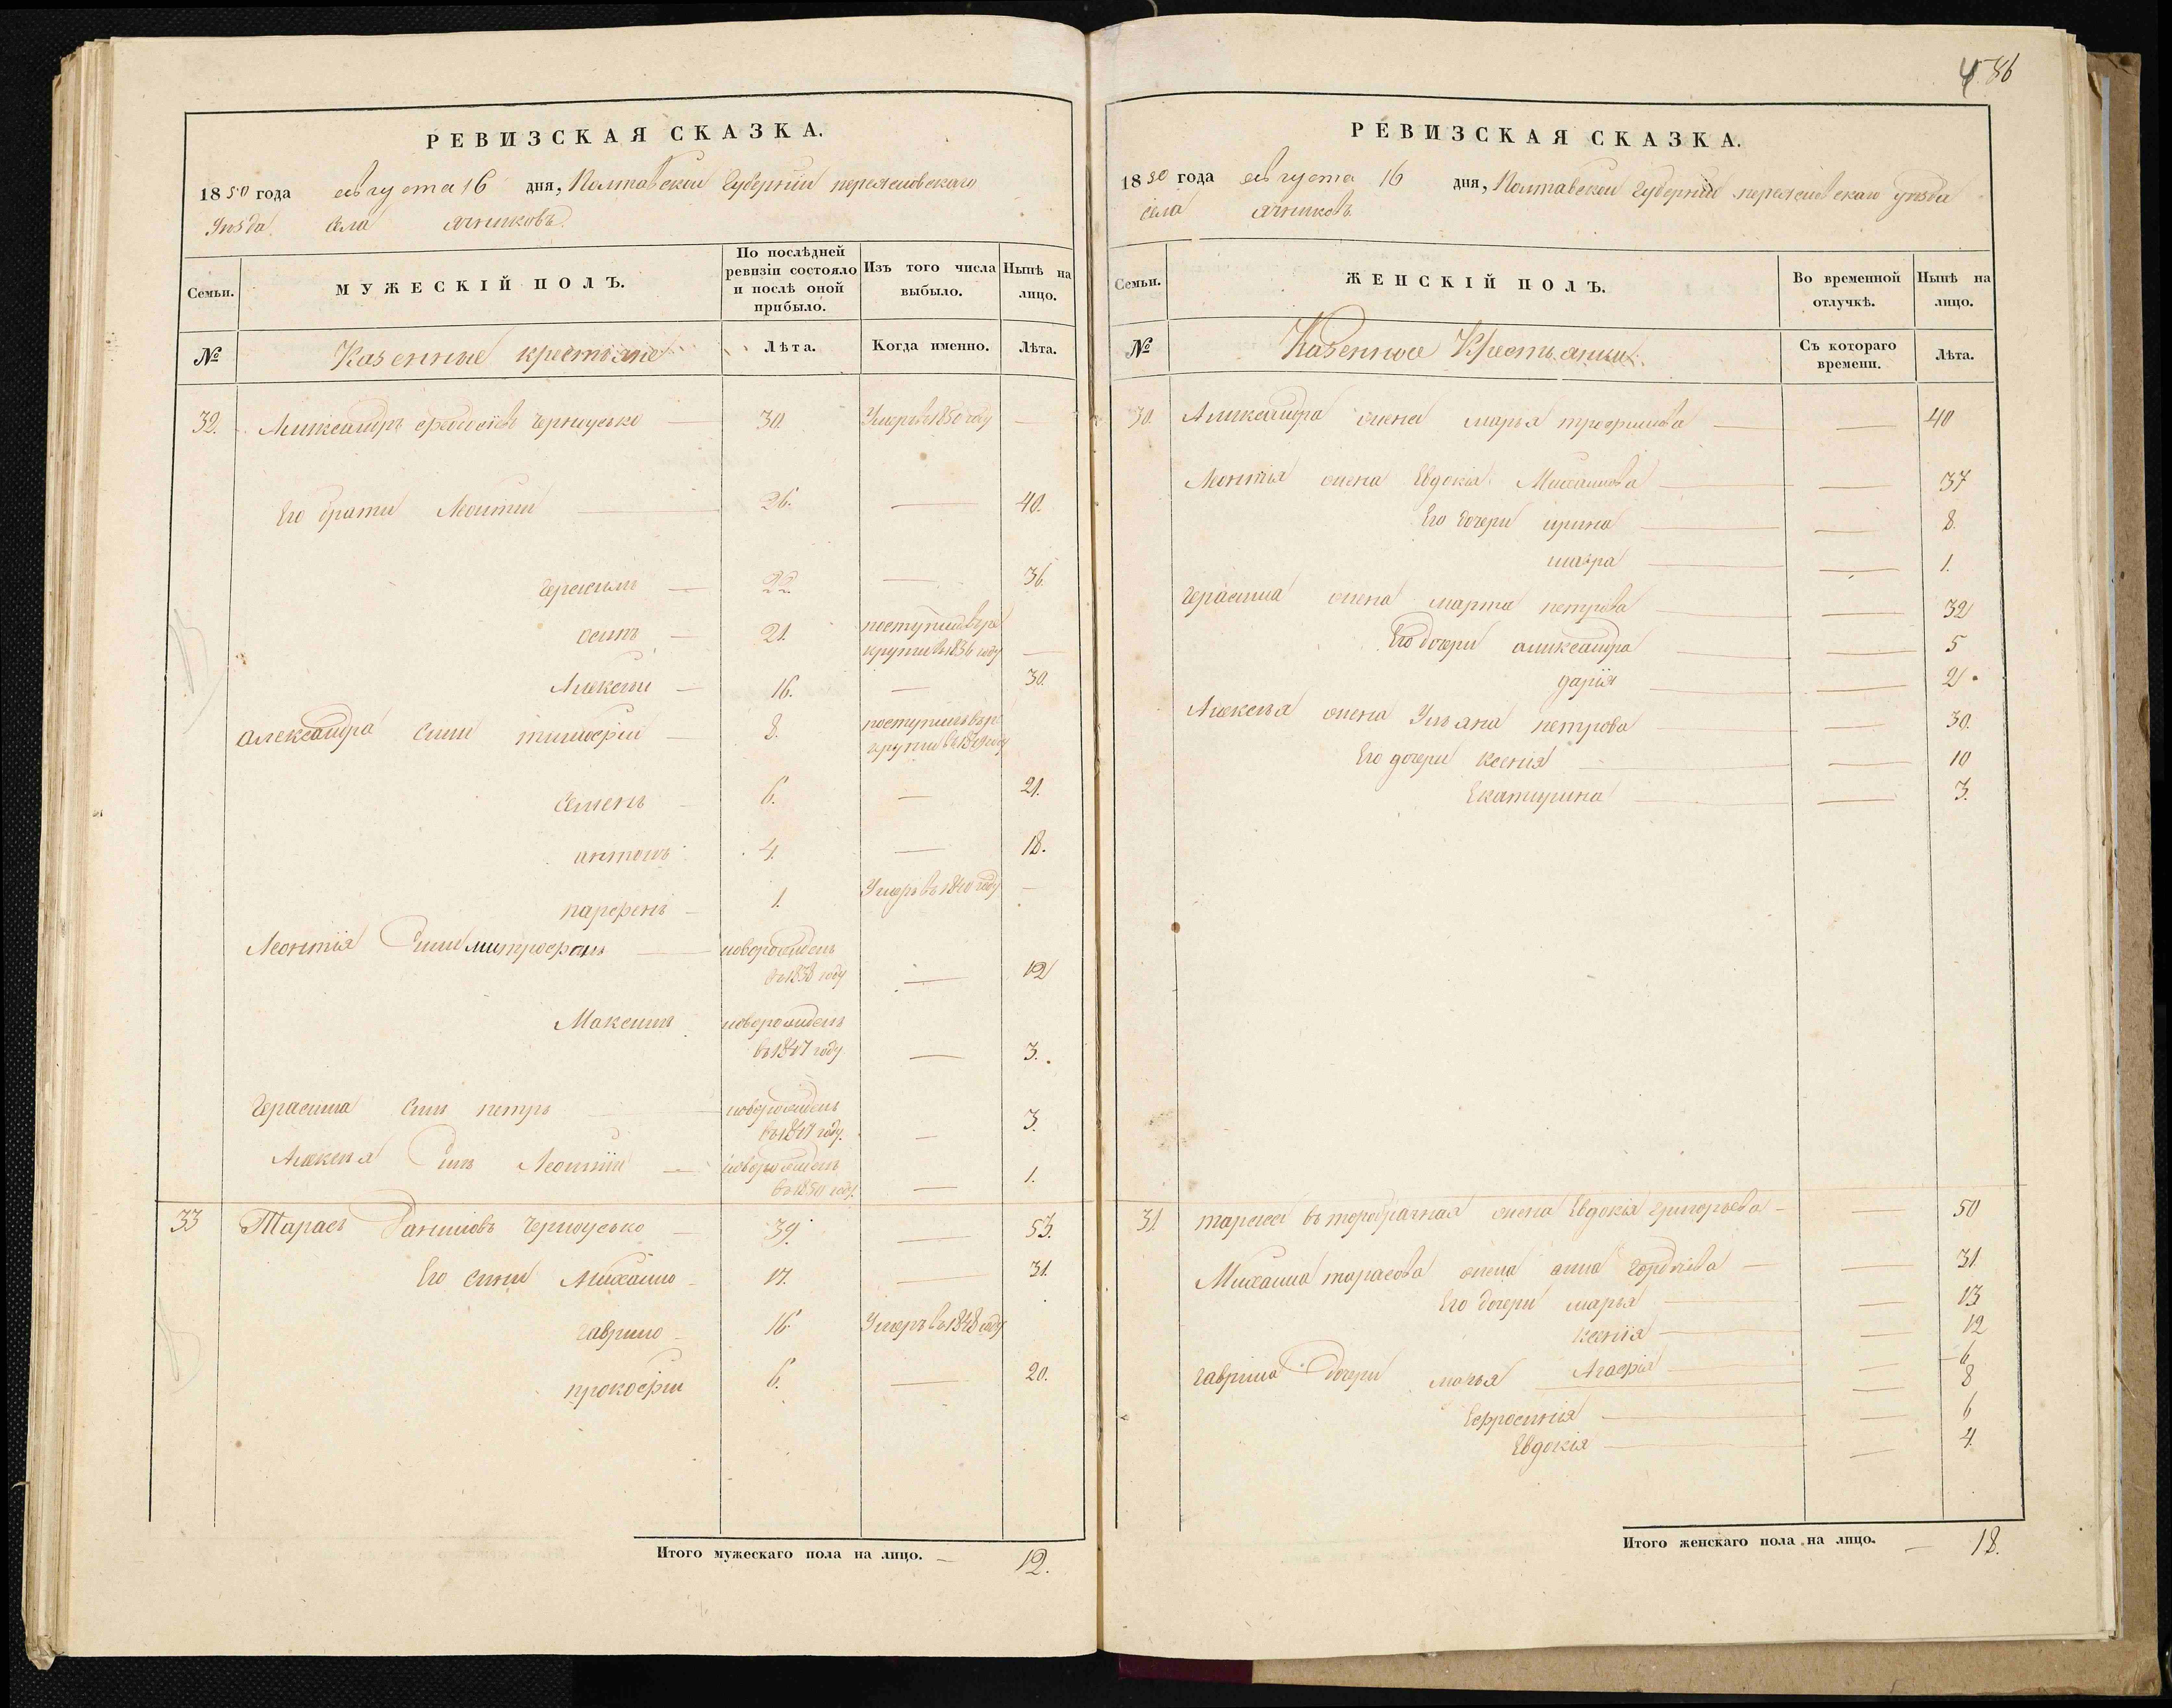 РЕВИЗСКАЯ СКАЗКА.
1850 года августа 16 дня, Полтавской Губернии переяславского
уезда села ячников.
Семьи. МУЖЕСКІЙ ПОЛЪ. По послѣдней ревизіи состояло и послѣ оной прибыло. Изъ того числа выбыло. Нынѣ на лицо.
№ Казенные крестьяне Лѣта. Когда именно. Лѣта.
32. Александръ федосіевъ Черноусько 30. Умеръ въ 1850 году
Его брати Леонтии 26. 40.
Герасимъ 22. 36.
осипъ 21. поступилъ въ ре
круты въ 1836 году
Алексѣи 16. 30.
александра сини тимофѣи 8. поступилъ въ ре
круты въ 1849 году
семенъ 6. 21.
антонъ 4. 18.
парфенъ 1. Умеръ въ 1840 году
Леонтія Сини митрофанъ новорожденъ
въ 1838 году 12
Максимъ новорожденъ
въ 1847 году 3.
Герасима синъ петръ новорожденъ
въ 1847 году. 3.
Алексѣя Синъ Леонтіи новорожденъ
въ 1850 году. 1.
33 Тарасъ Даниловъ Черноусько 39. 53.
Его сини Михаило 17. 31.
гаврило 16. Умеръ въ 1848 году
прокофіи 6. 20.
Итого мужескаго пола на лицо. 12.
86
РЕВИЗСКАЯ СКАЗКА.
1850 года августа 16 дня, Полтавской Губернии переяславскаго уезда
села ячников.
Семьи. ЖЕНСКІЙ ПОЛЪ. Во временной отлучкѣ. Нынѣ на лицо.
№ Казенные Крестьянки. Съ котораго времени. Лѣта.
30. Александра жена марья трофимова 40
Леонтія жена Евдокія Михаилова 37
Его дочери ирина 8.
мавра 1.
Герасима жена марта петрова 32
Его дочери александра 5
дарія 2.
Алексѣя жена Ульяна петрова 30.
Его дочери ксенія 10
Екатирина 3.
31. тараса второбрачная жена Евдокія григорьева 50
Михаила тарасова жена анна Гордѣева 31
Его дочери марья 13
ксенія 12
Агафія 6
гаврила дочери марья 8
Ефросинія 6
Евдокія 4.
Итого женскаго пола на лицо. 18.